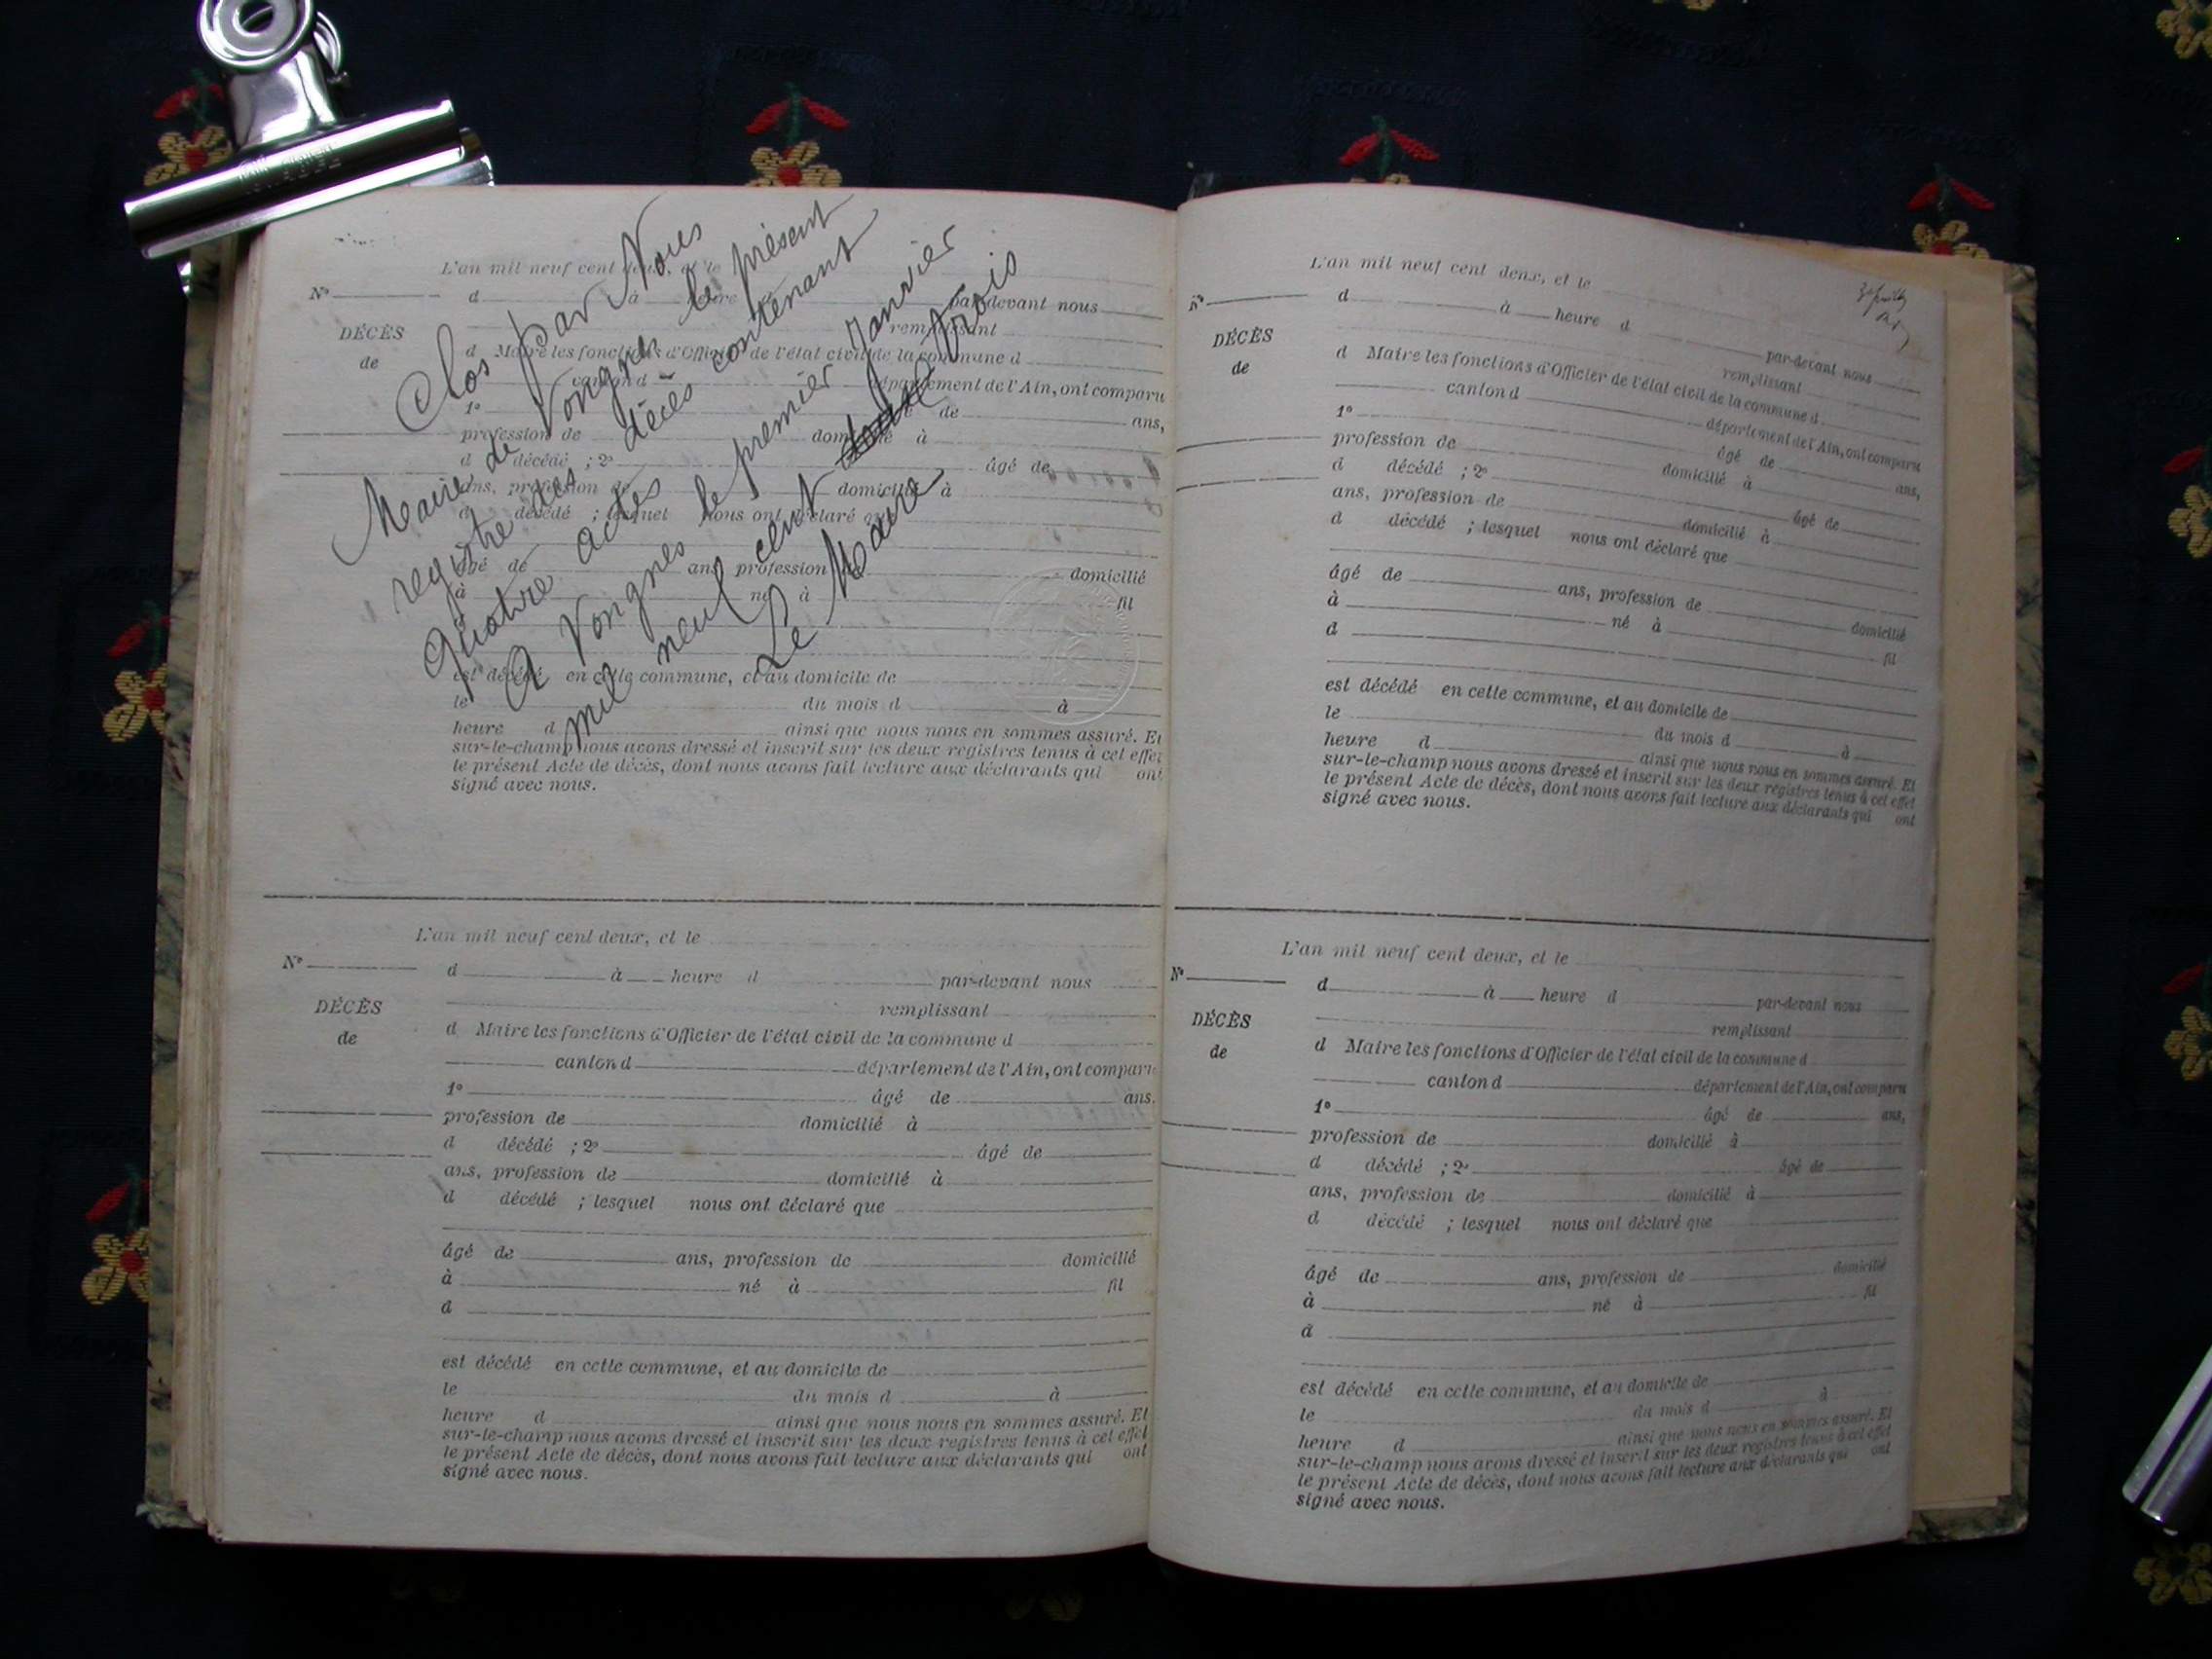 Clos par Nous
Maire de Vongnes le présent
registre des décès contenant
quatre actes
A Vongnes le premier Janvier
mil neuf cent trois
Le Maire
L'an mil neuf cent deux, et le
N°
d à heure par-devant nous
DÉCÈS
remplissant
de
d Maire les fonctions d'Officier de l'état civil de la commune d
canton d département de l'Ain, ont comparu
1° de ans,
profession de domicilié à
d décédé ; 2° âgé de
ans, profession de domicilié à
d décédé ; lesquel nous ont déclaré que
âgé de ans, profession domicilié
à né à fil
est décédé en cette commune, et au domicile de
le du mois d à
heure d ainsi que nous nous en sommes assuré. Et
sur-le-champ nous avons dressé et inscrit sur les deux registres tenus à cet effet
le présent Acte de décès, dont nous avons fait lecture aux déclarants qui ont
signé avec nous.
L'an mil neuf cent deux, et le
N°
d à heure d par-devant nous
DÉCÈS
remplissant
de
d Maire les fonctions d'Officier de l'état civil de la commune d
canton d département de l'Ain, ont comparu
1° âgé de ans.
profession de domicilié à
d décédé ; 2° âgé de
ans, profession de domicilié à
d décédé ; lesquel nous ont déclaré que
âgé de ans, profession de domicilié
à né à fil
d
est décédé en cette commune, et au domicile de
le du mois d à
heure d ainsi que nous nous en sommes assuré. Et
sur-le-champ nous avons dressé et inscrit sur les deux registres tenus à cet effet
le présent Acte de décès, dont nous avons fait lecture aux déclarants qui ont
signé avec nous.
L'an mil neuf cent deux, et le
N°
d à heure d par-devant nous
DÉCÈS
remplissant
de
d Maire les fonctions d'Officier de l'état civil de la commune d
canton d département de l'Ain, ont comparu
1° âgé de ans,
profession de domicilié à
d décédé ; 2° âgé de
ans, profession de domicilié à
d décédé ; lesquel nous ont déclaré que
âgé de ans, profession de domicilié
à né à fil
d
est décédé en cette commune, et au domicile de
le du mois d à
heure d ainsi que nous nous en sommes assuré. Et
sur-le-champ nous avons dressé et inscrit sur les deux registres tenus à cet effet
le présent Acte de décès, dont nous avons fait lecture aux déclarants qui ont
signé avec nous.
L'an mil neuf cent deux, et le
N°
d à heure d par-devant nous
DÉCÈS
remplissant
de
d Maire les fonctions d'Officier de l'état civil de la commune d
canton d département de l'Ain, ont comparu
1° âgé de ans,
profession de domicilié à
d décédé ; 2° âgé de
ans, profession de domicilié à
d décédé ; lesquel nous ont déclaré que
âgé de ans, profession de domicilié
à né à fil
d
est décédé en cette commune, et au domicile de
le du mois d à
heure d ainsi que nous nous en sommes assuré. Et
sur-le-champ nous avons dressé et inscrit sur les deux registres tenus à cet effet
le présent Acte de décès, dont nous avons fait lecture aux déclarants qui ont
signé avec nous.